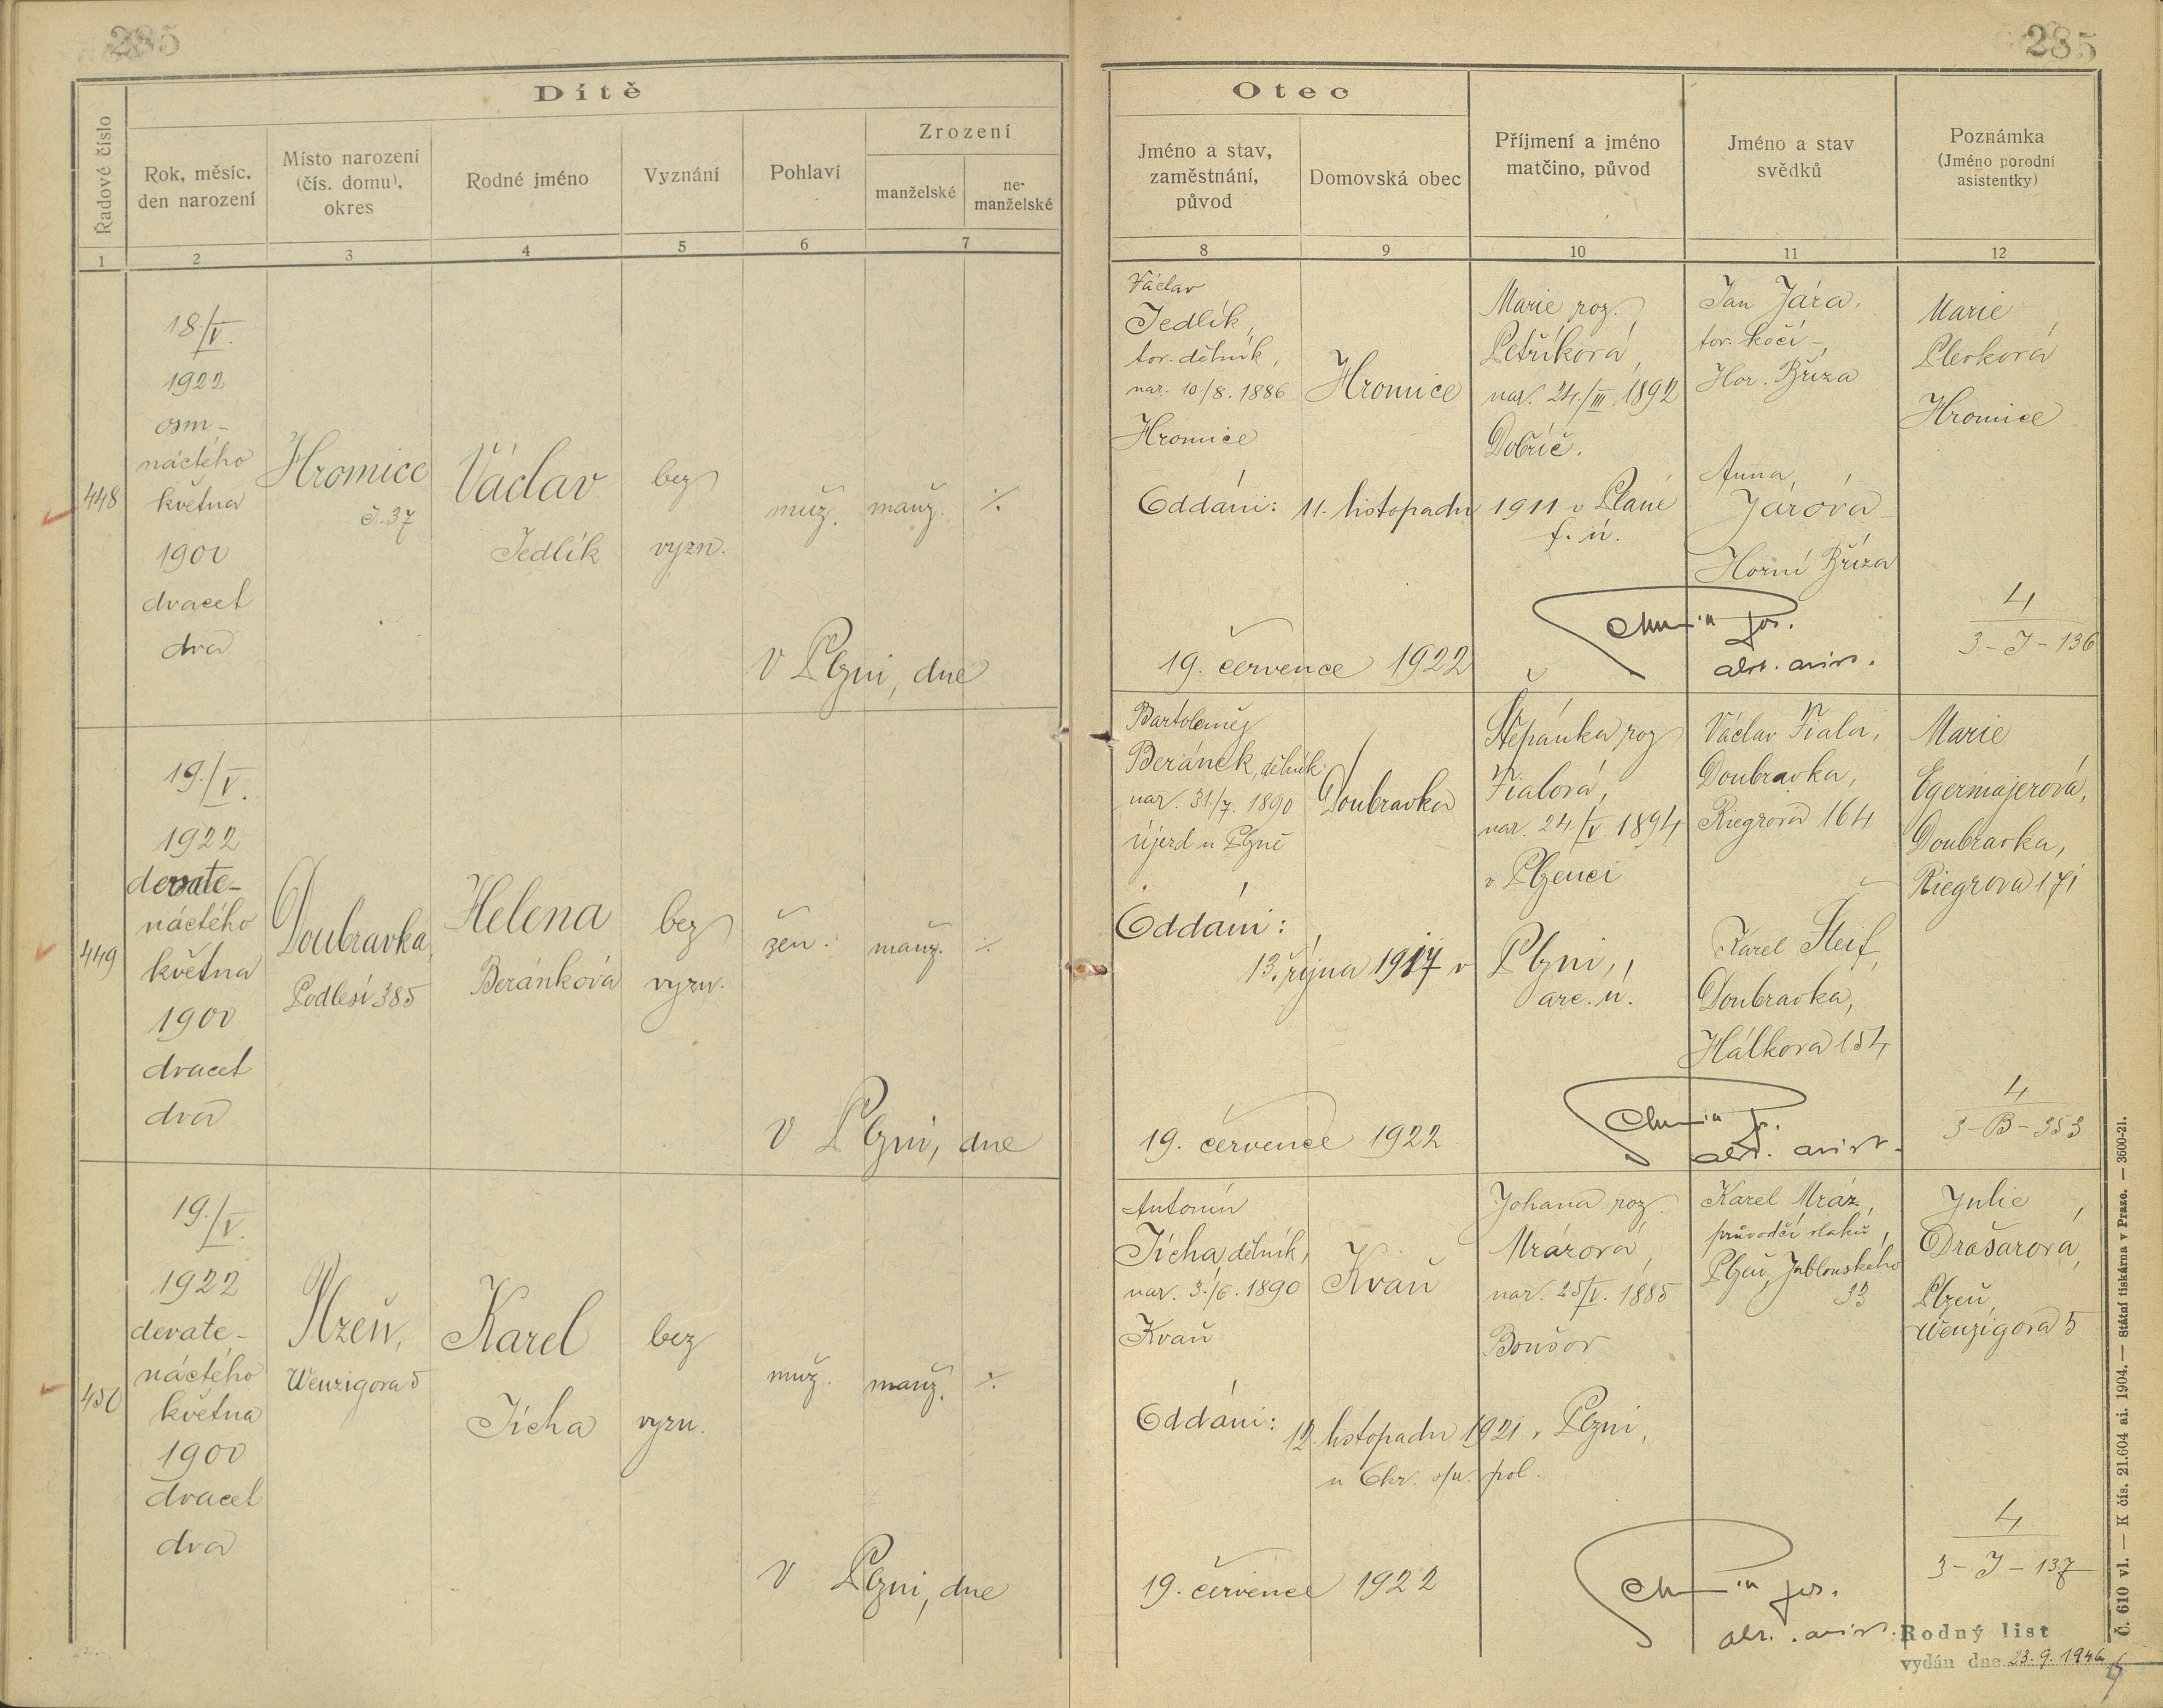 285
285
Dítě
Řadové číslo
Rok, měsíc,
den narození
Místo narození
(čís. domu),
okres
Rodné jméno
Vyznání
Pohlaví
Zrození
manželské
ne-
manželské
1
2
3
4
5
6
7
Otec
Jméno a stav,
zaměstnání,
původ
Domovská obec
Příjmení a jméno
matčino, původ
Jméno a stav
svědků
Poznámka
(Jméno porodní
asistentky)
8
9
10
11
12
448
18./V.
1922
osm-
náctého
května
1900
dvacet
dva
Hromice
č. 37
Václav
Jedlík
bez
vyzn.
muž.
manž.
⁒
V Plzni, dne
Václav
Jedlík,
tov. dělník,
nar. 10./8. 1886
Hromice
Hromice
Marie roz.
Petříková,
nar. 24./III. 1892
Dobříč.
Jan Jára,
tov. kočí -,
Hor. Bříza
Anna
Járová
Horní Bříza
Marie
Hromice
Oddáni: 11. listopadu 1911 v Plané
f. ú.
19. července 1922
4
3-J-136
449
19./V.
1922
devate-
náctého
května
1900
dvacet
dva
Doubravka,
Podlesí 385
Helena
Beránková
bez
vyzn.
žen.
manž.
⁒
V Plzni, dne
Bartoloměj
Beránek, dělník
nar. 31./7. 1890
Újezd u Plzně
Doubravka
Štěpánka roz
Fialová,
nar. 24./V. 1894
v Plzenci
Václav Fiala,
Doubravka,
Riegrova 164
Karel Šteif,
Doubravka,
Hálkova 154
Marie
Egermajerová,
Doubravka,
Riegrova 171
Oddáni:
13. října 1917 v Plzni,
arc. ú.
19. července 1922
4
3-B-353
450
19./V.
1922
devate-
náctého
května
1900
dvacet
dva
Plzeň,
Wenzigova 5
Karel
Jícha
bez
vyzn.
muž.
manž.
⁒
V Plzni, dne
Antonín
Jícha, dělník,
nar. 3./6. 1890
Kvaň
Kvaň
Johana roz.
Mrázová,
nar. 25/V. 1885
Boušov
Karel Mráz,
průvodčí vlaků,
Plzeň, Jablonského
33
Julie
Drašarová,
Plzeň,
Wenzigova 5
Oddáni: 12. listopadu 1921 v Plzni,
u Okr. spr. pol.
19. července 1922
4
3-J-137
Rodný list
vydán dne 23. 9. 1946
Č. 610 vl. — K čís. 21.604 ai. 1904. — Státní tiskárna v Praze. — 3600-21.